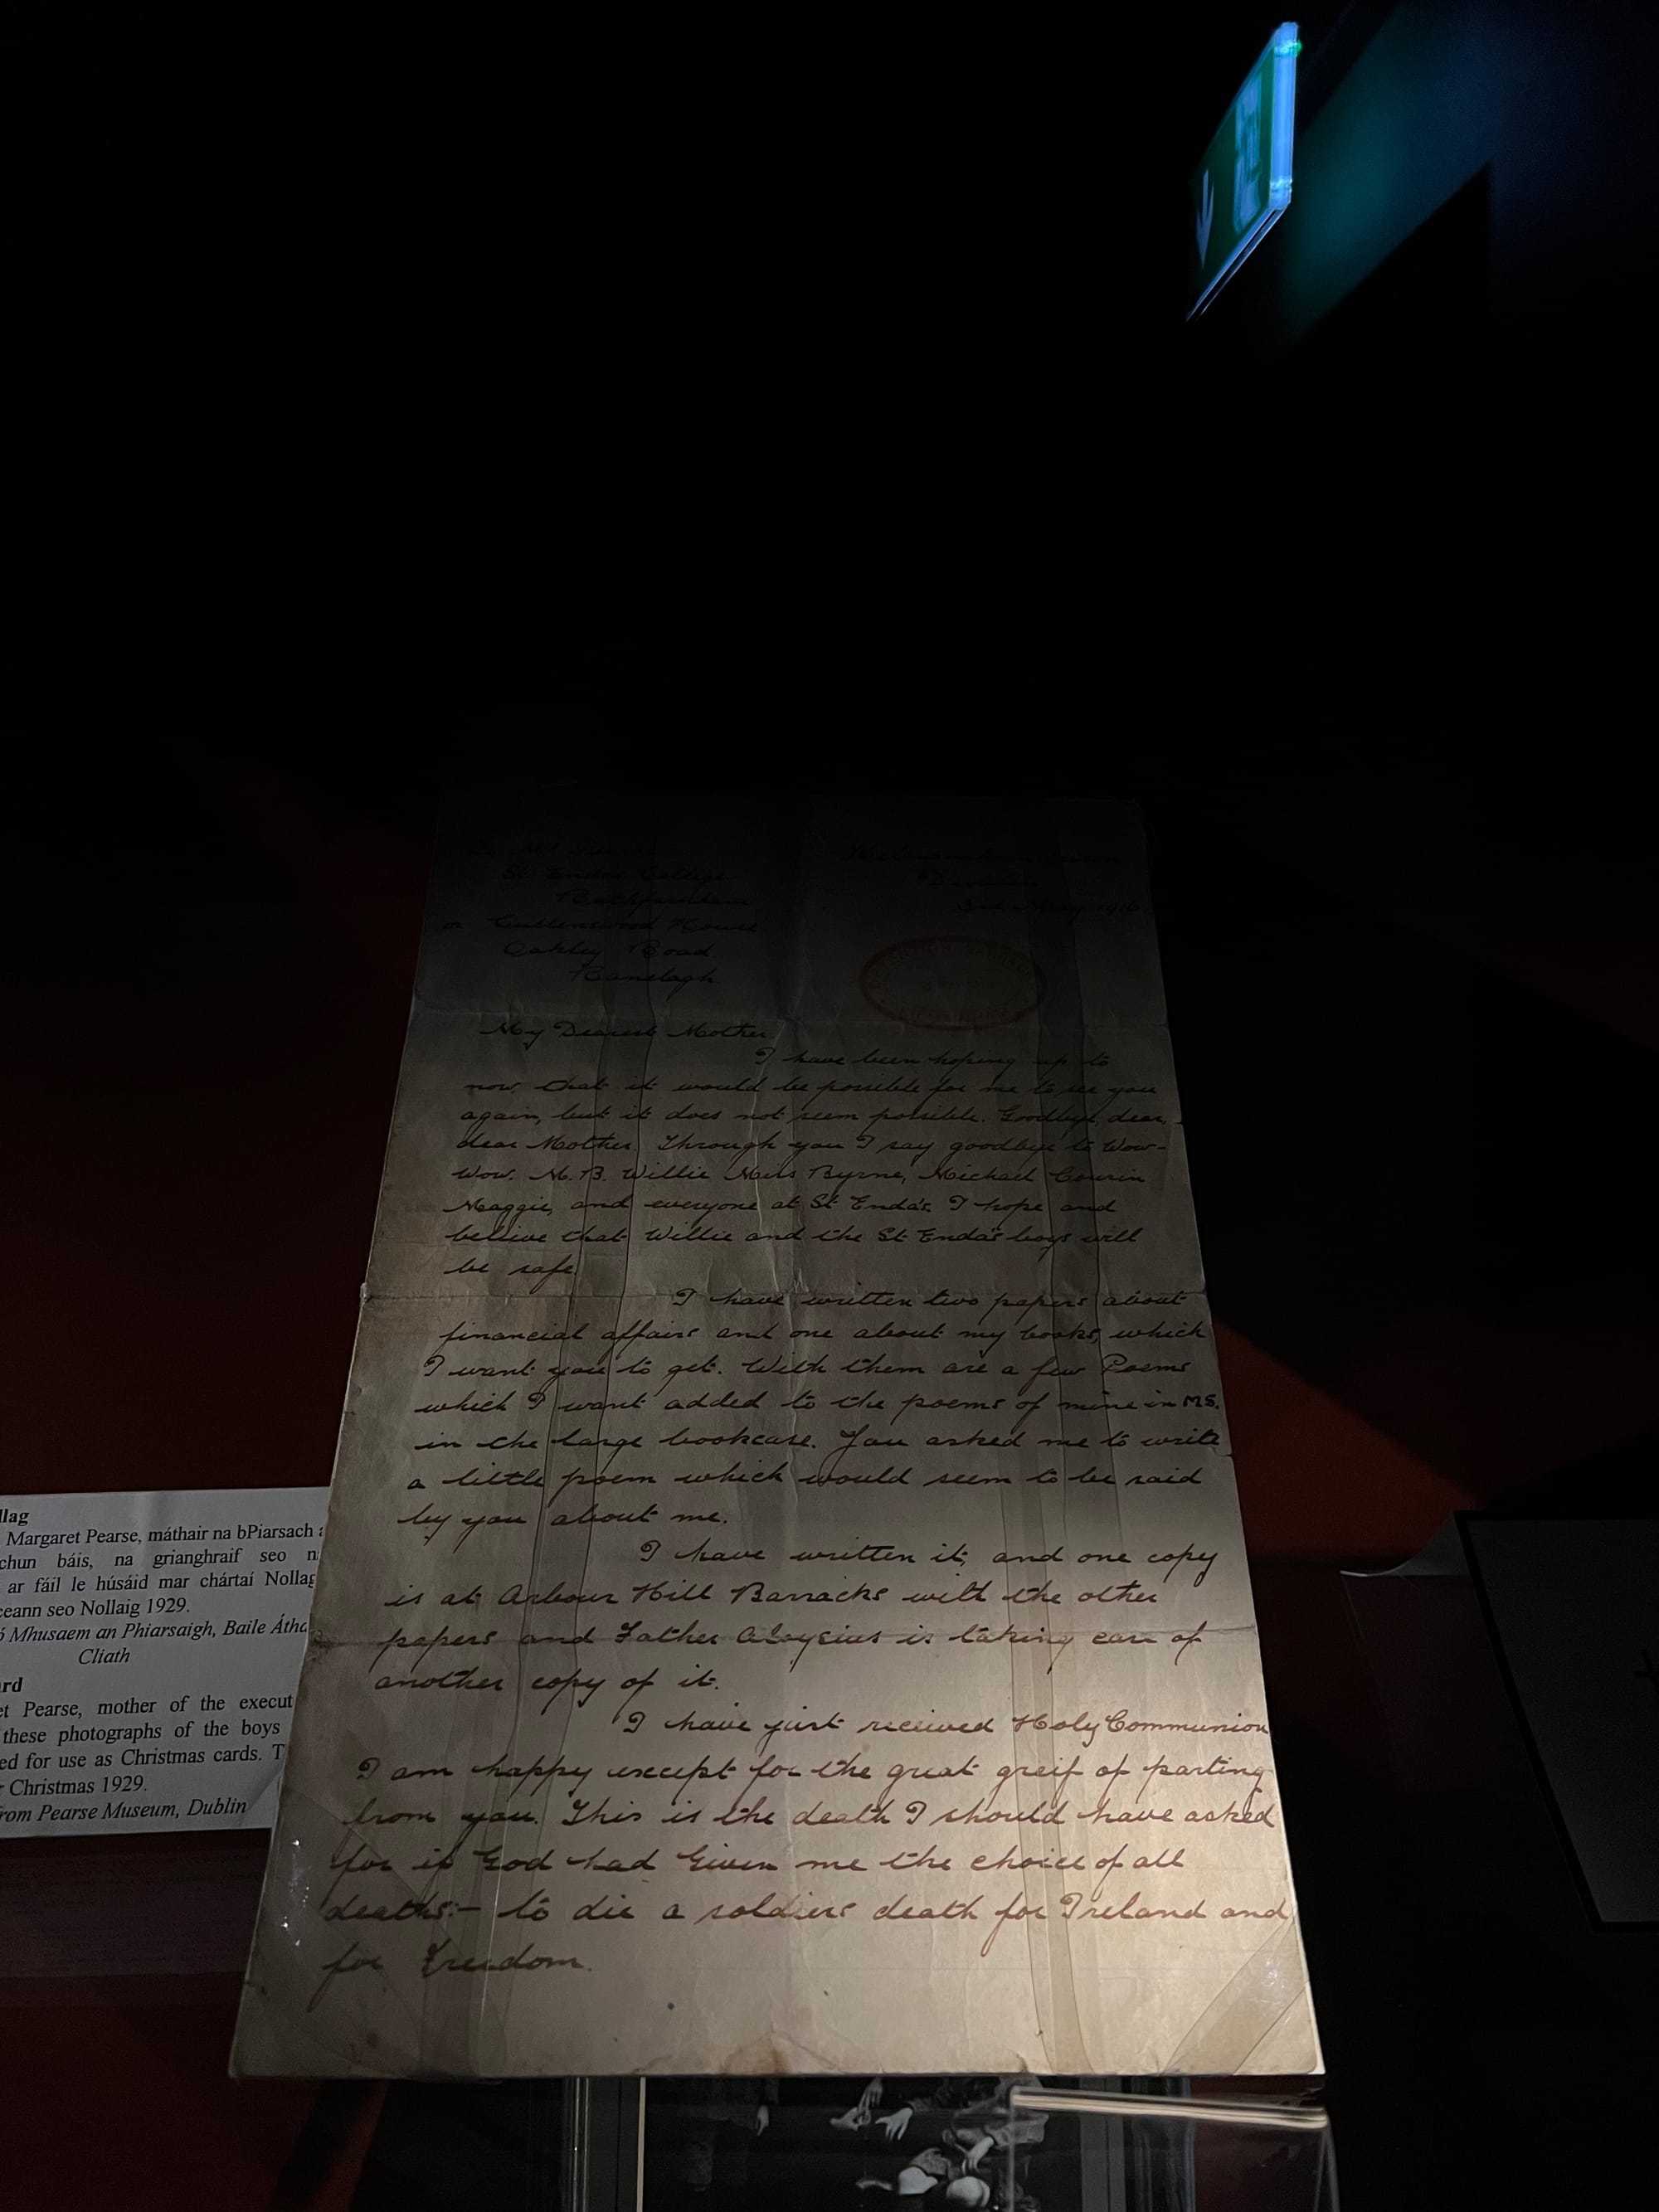 To Mrs Pearse
St Enda's College
Rathfarnham
or Cullenswood House
Oakley Road
Ranelagh
Kilmainham Prison
Dublin
3rd May 1916
My Dearest Mother
I have been hoping up to
now that it would be possible for me to see you
again, but it does not seem possible. Goodbye, dear,
dear Mother. Through you I say goodbye to Wow-
Wow. M. B. Willie Miss Byrne, Michael Cousin
Maggie, and everyone at St Enda's. I hope and
believe that Willie and the St Enda's boys will
be safe.
I have written two papers about
financial affairs and one about my books, which
I want you to get. With them are a few Poems
which I want added to the poems of mine in MS.
in the large bookcase. You asked me to write
a little poem which would seem to be said
by you about me.
I have written it, and one copy
is at Arbour Hill Barracks with the other
papers and Father Aloysius is taking care of
another copy of it.
I have just received Holy Communion
I am happy except for the great greif of parting
from you. This is the death I should have asked
for if God had Given me the choice of all
deaths:- to die a soldiers death for Ireland and
for Freedom.
llag
Margaret Pearse, máthair na bPiarsach a
chun báis, na grianghraif seo n
ar fáil le húsáid mar chártaí Nollag
ceann seo Nollaig 1929.
ó Mhusaem an Phiarsaigh, Baile Átha
Cliath
ard
et Pearse, mother of the execut
these photographs of the boys
ed for use as Christmas cards. T
r Christmas 1929.
from Pearse Museum, Dublin